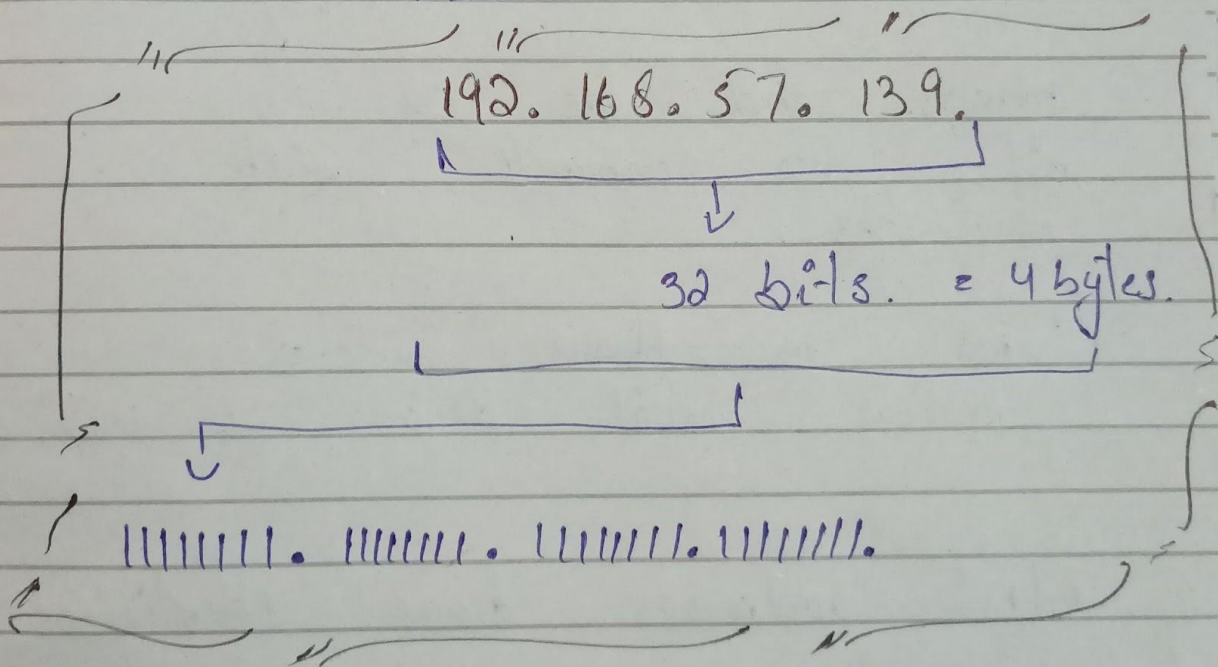 192. 168. 57. 139.
32 bits. = 4 bytes.
11111111. 11111111. 11111111. 11111111.